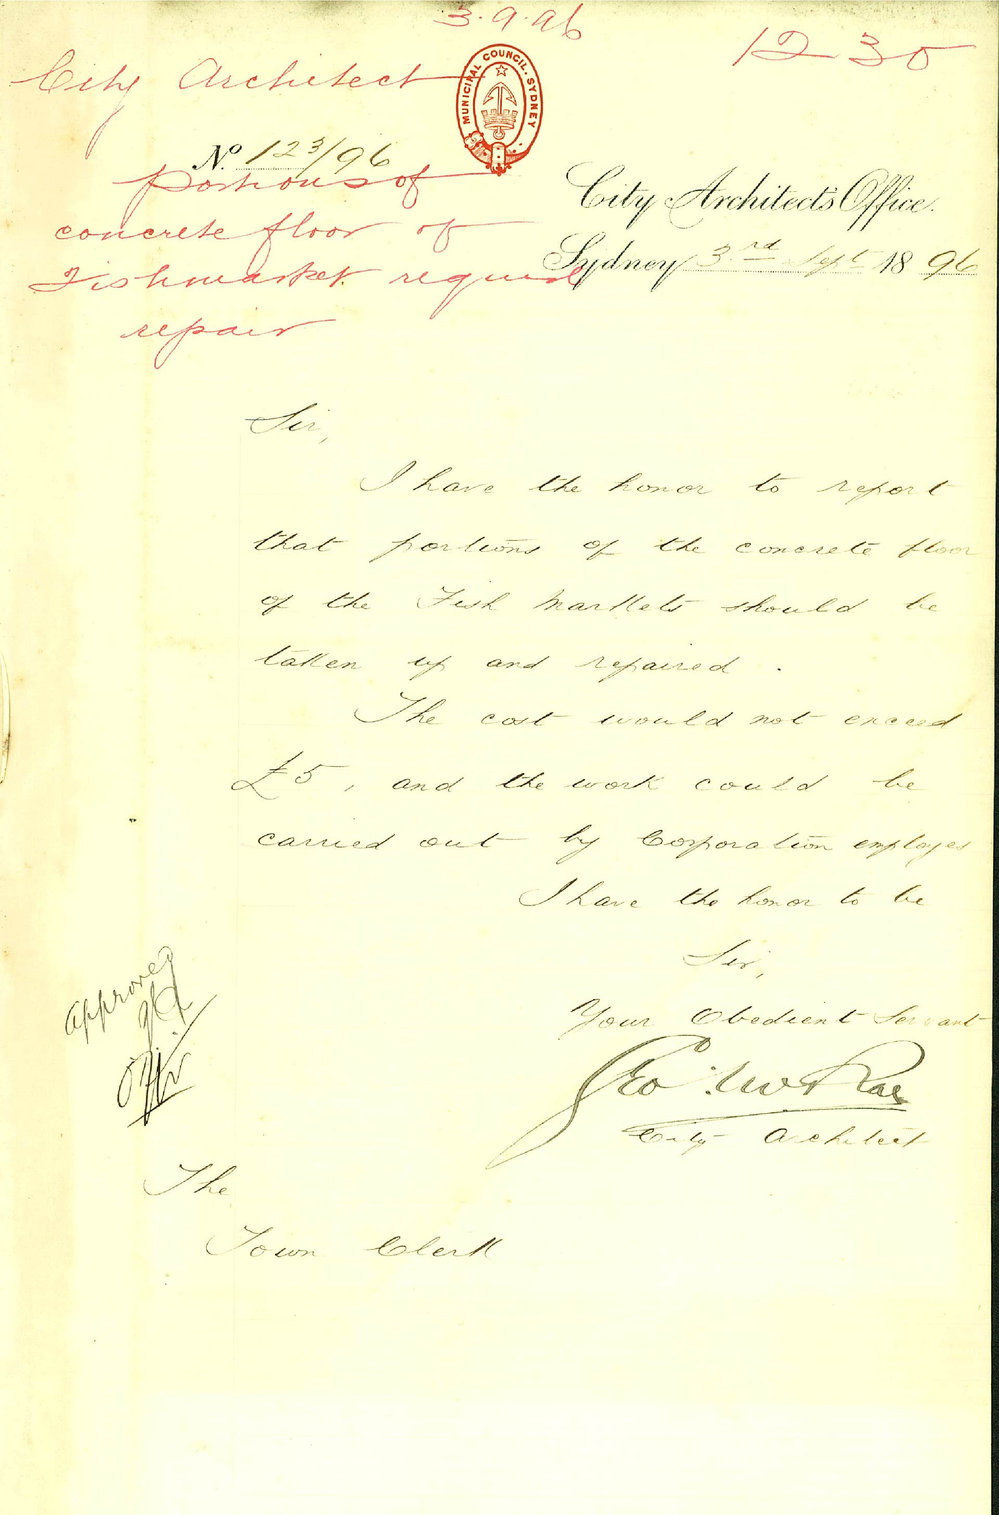 3.9.96
1230
City Architect
MUNICIPAL COUNCIL. SYDNEY
No. 123/96
portions of
concrete floor of
Fishmarket require
repair
City Architect's Office.
Sydney 3rd Sept 1896
Sir,
I have the honor to report
that portions of the concrete floor
of the Fish Markets should be
taken up and repaired.
The cost would not exceed
£5, and the work could be
carried out by Corporation employes
I have the honor to be
Sir,
Your Obedient Servant
Geo. McRae
City Architect
Approved
The
Town Clerk